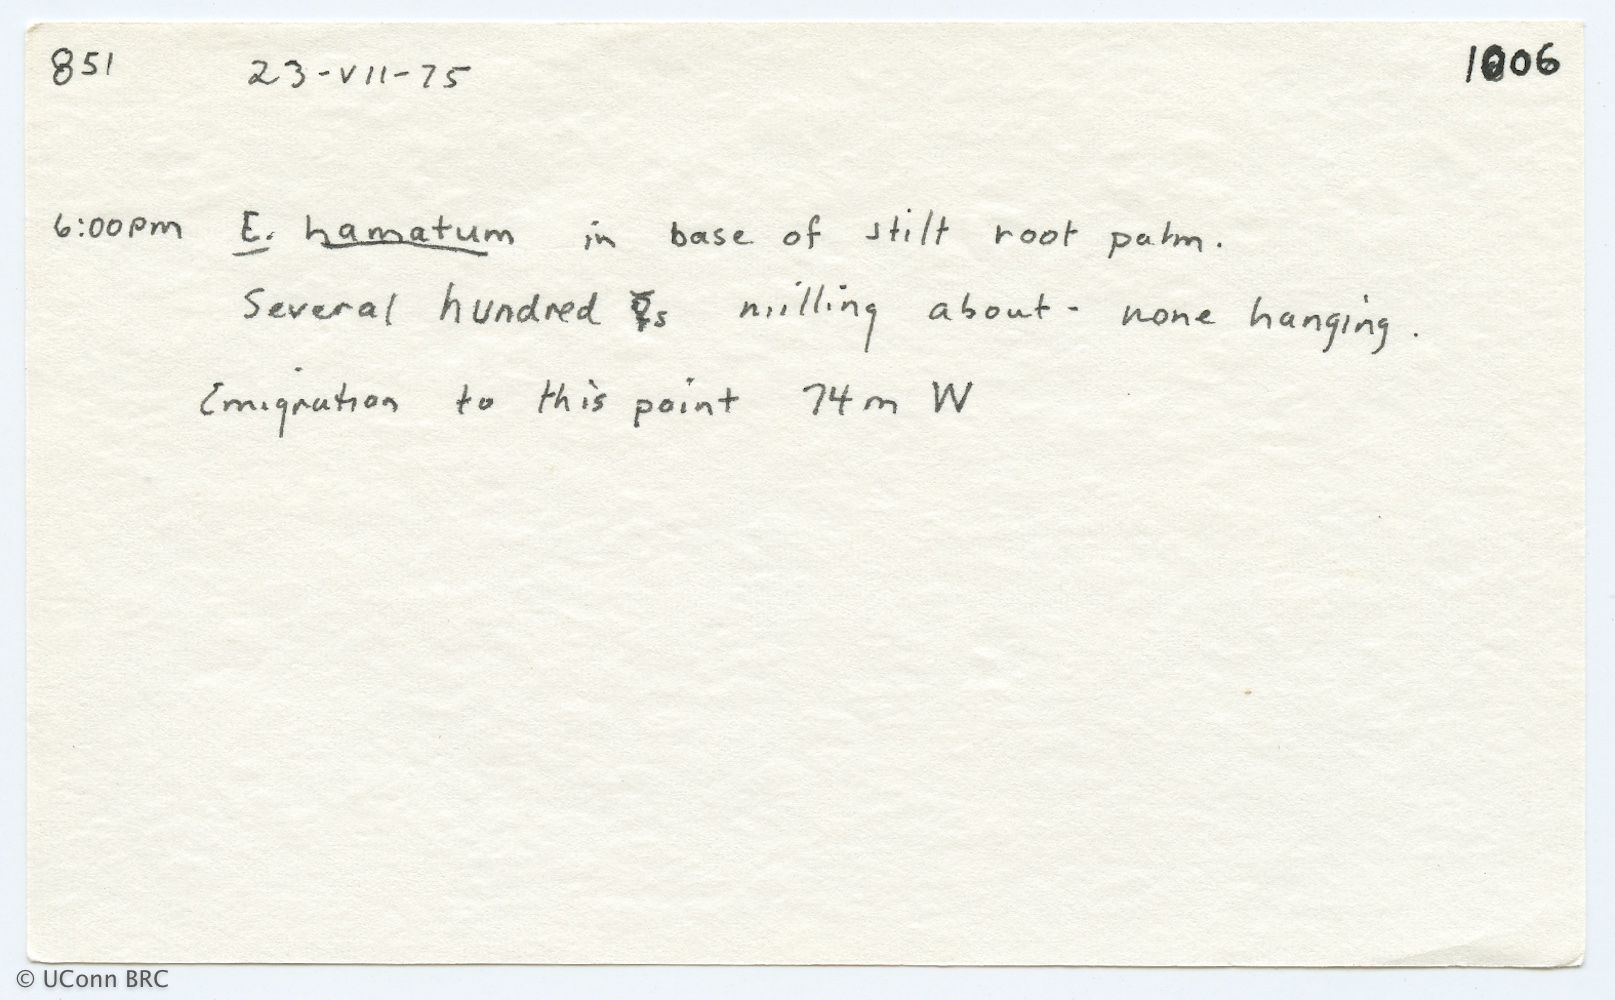 851 23-VII-75 1006
6:00pm E. hamatum in base of stilt root palm.
Several hundred ☿s milling about - none hanging.
Emigration to this point 74m W
© UConn BRC